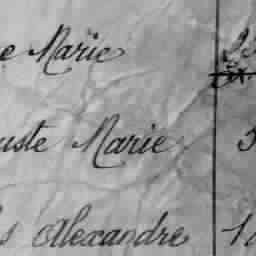 e Marie
uste Marie
s Alexandre